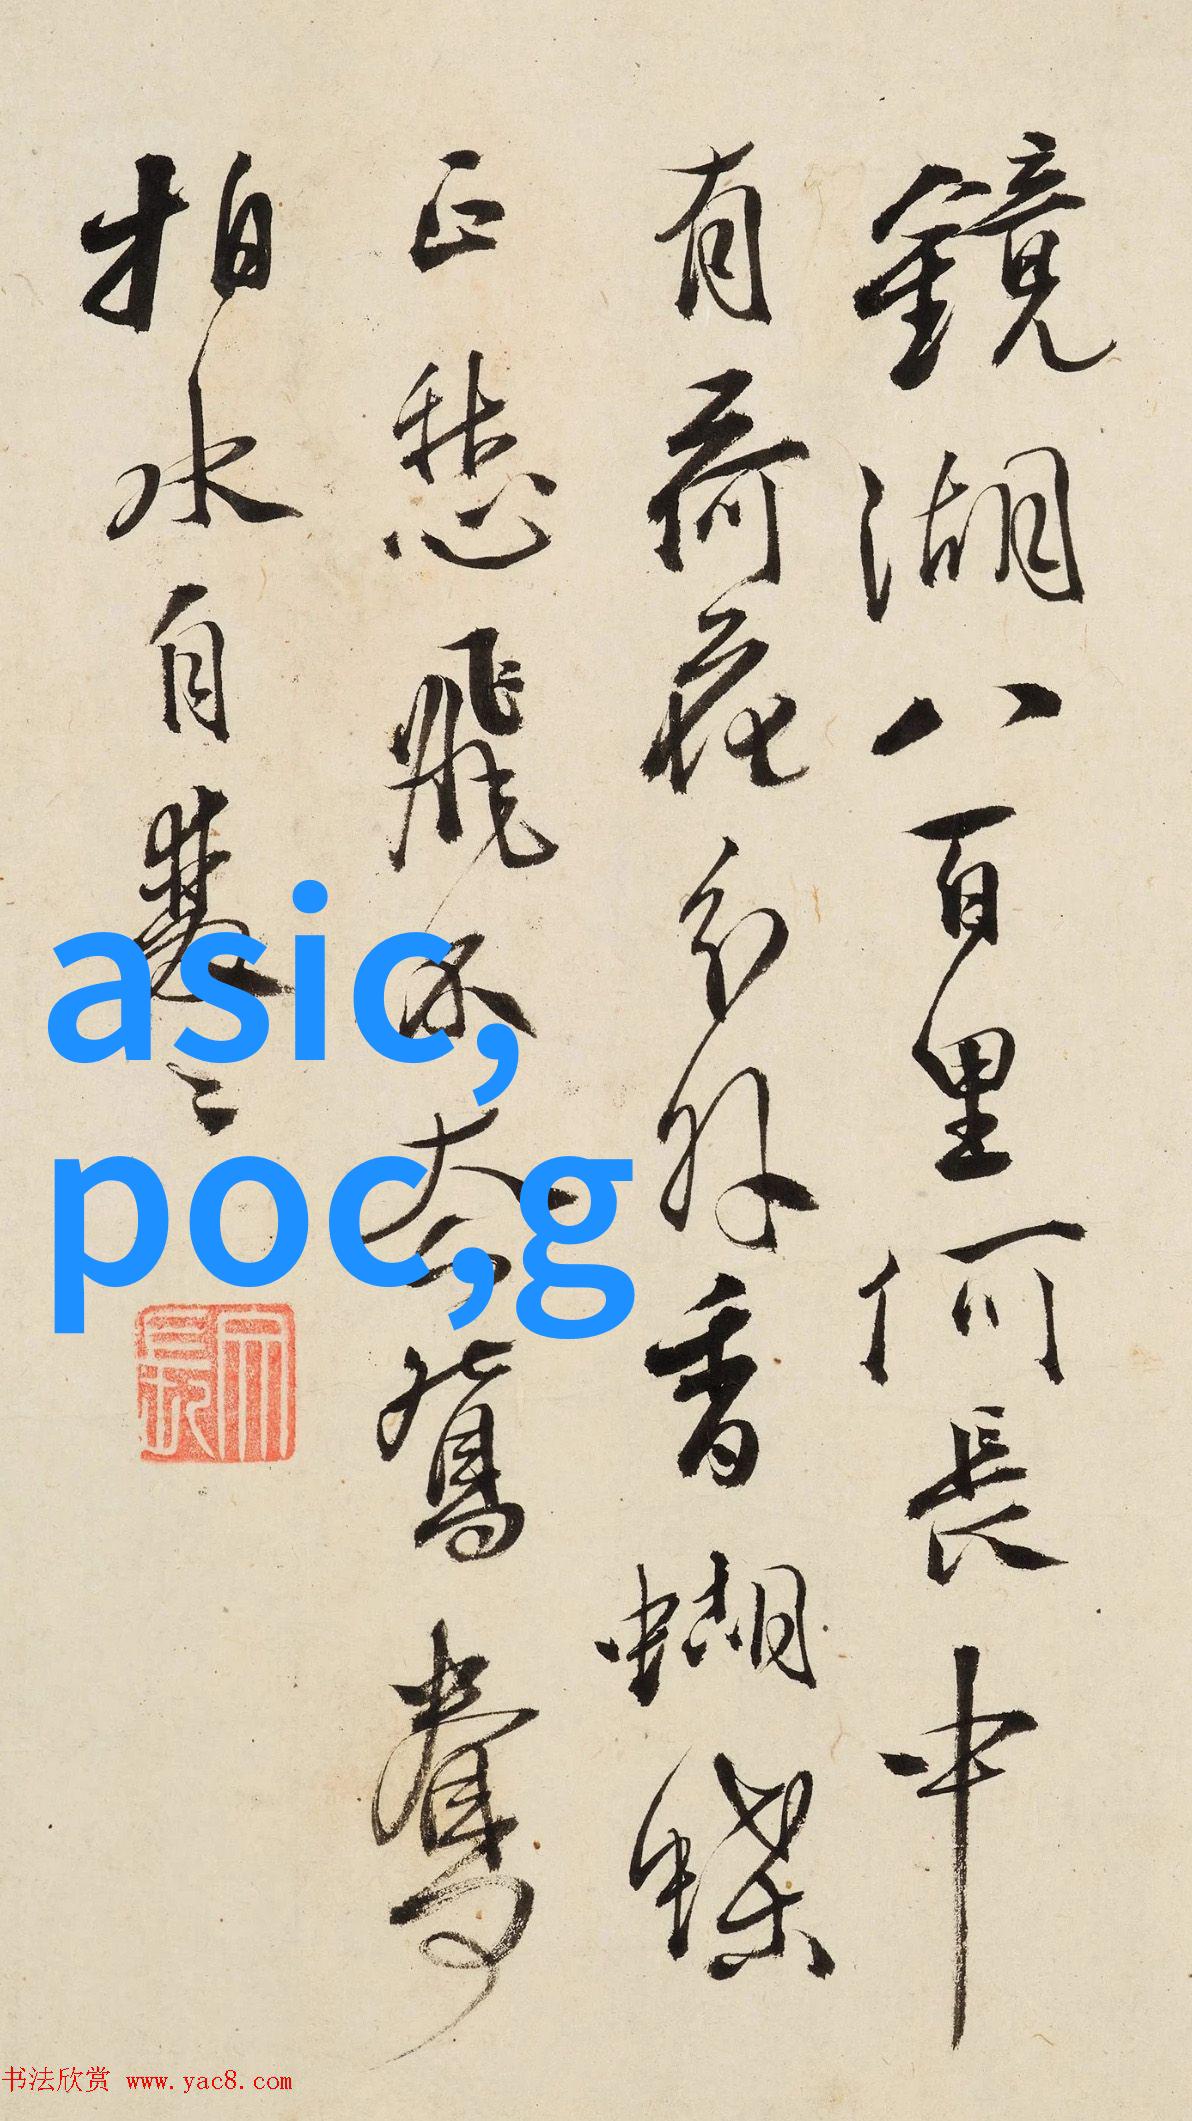 鏡湖八百里何長中
有荷花分外香蝴蝶
正愁飛不去鴛鴦
拍水自雙〻
asic,
poc,g
书法欣赏 www.yac8.com